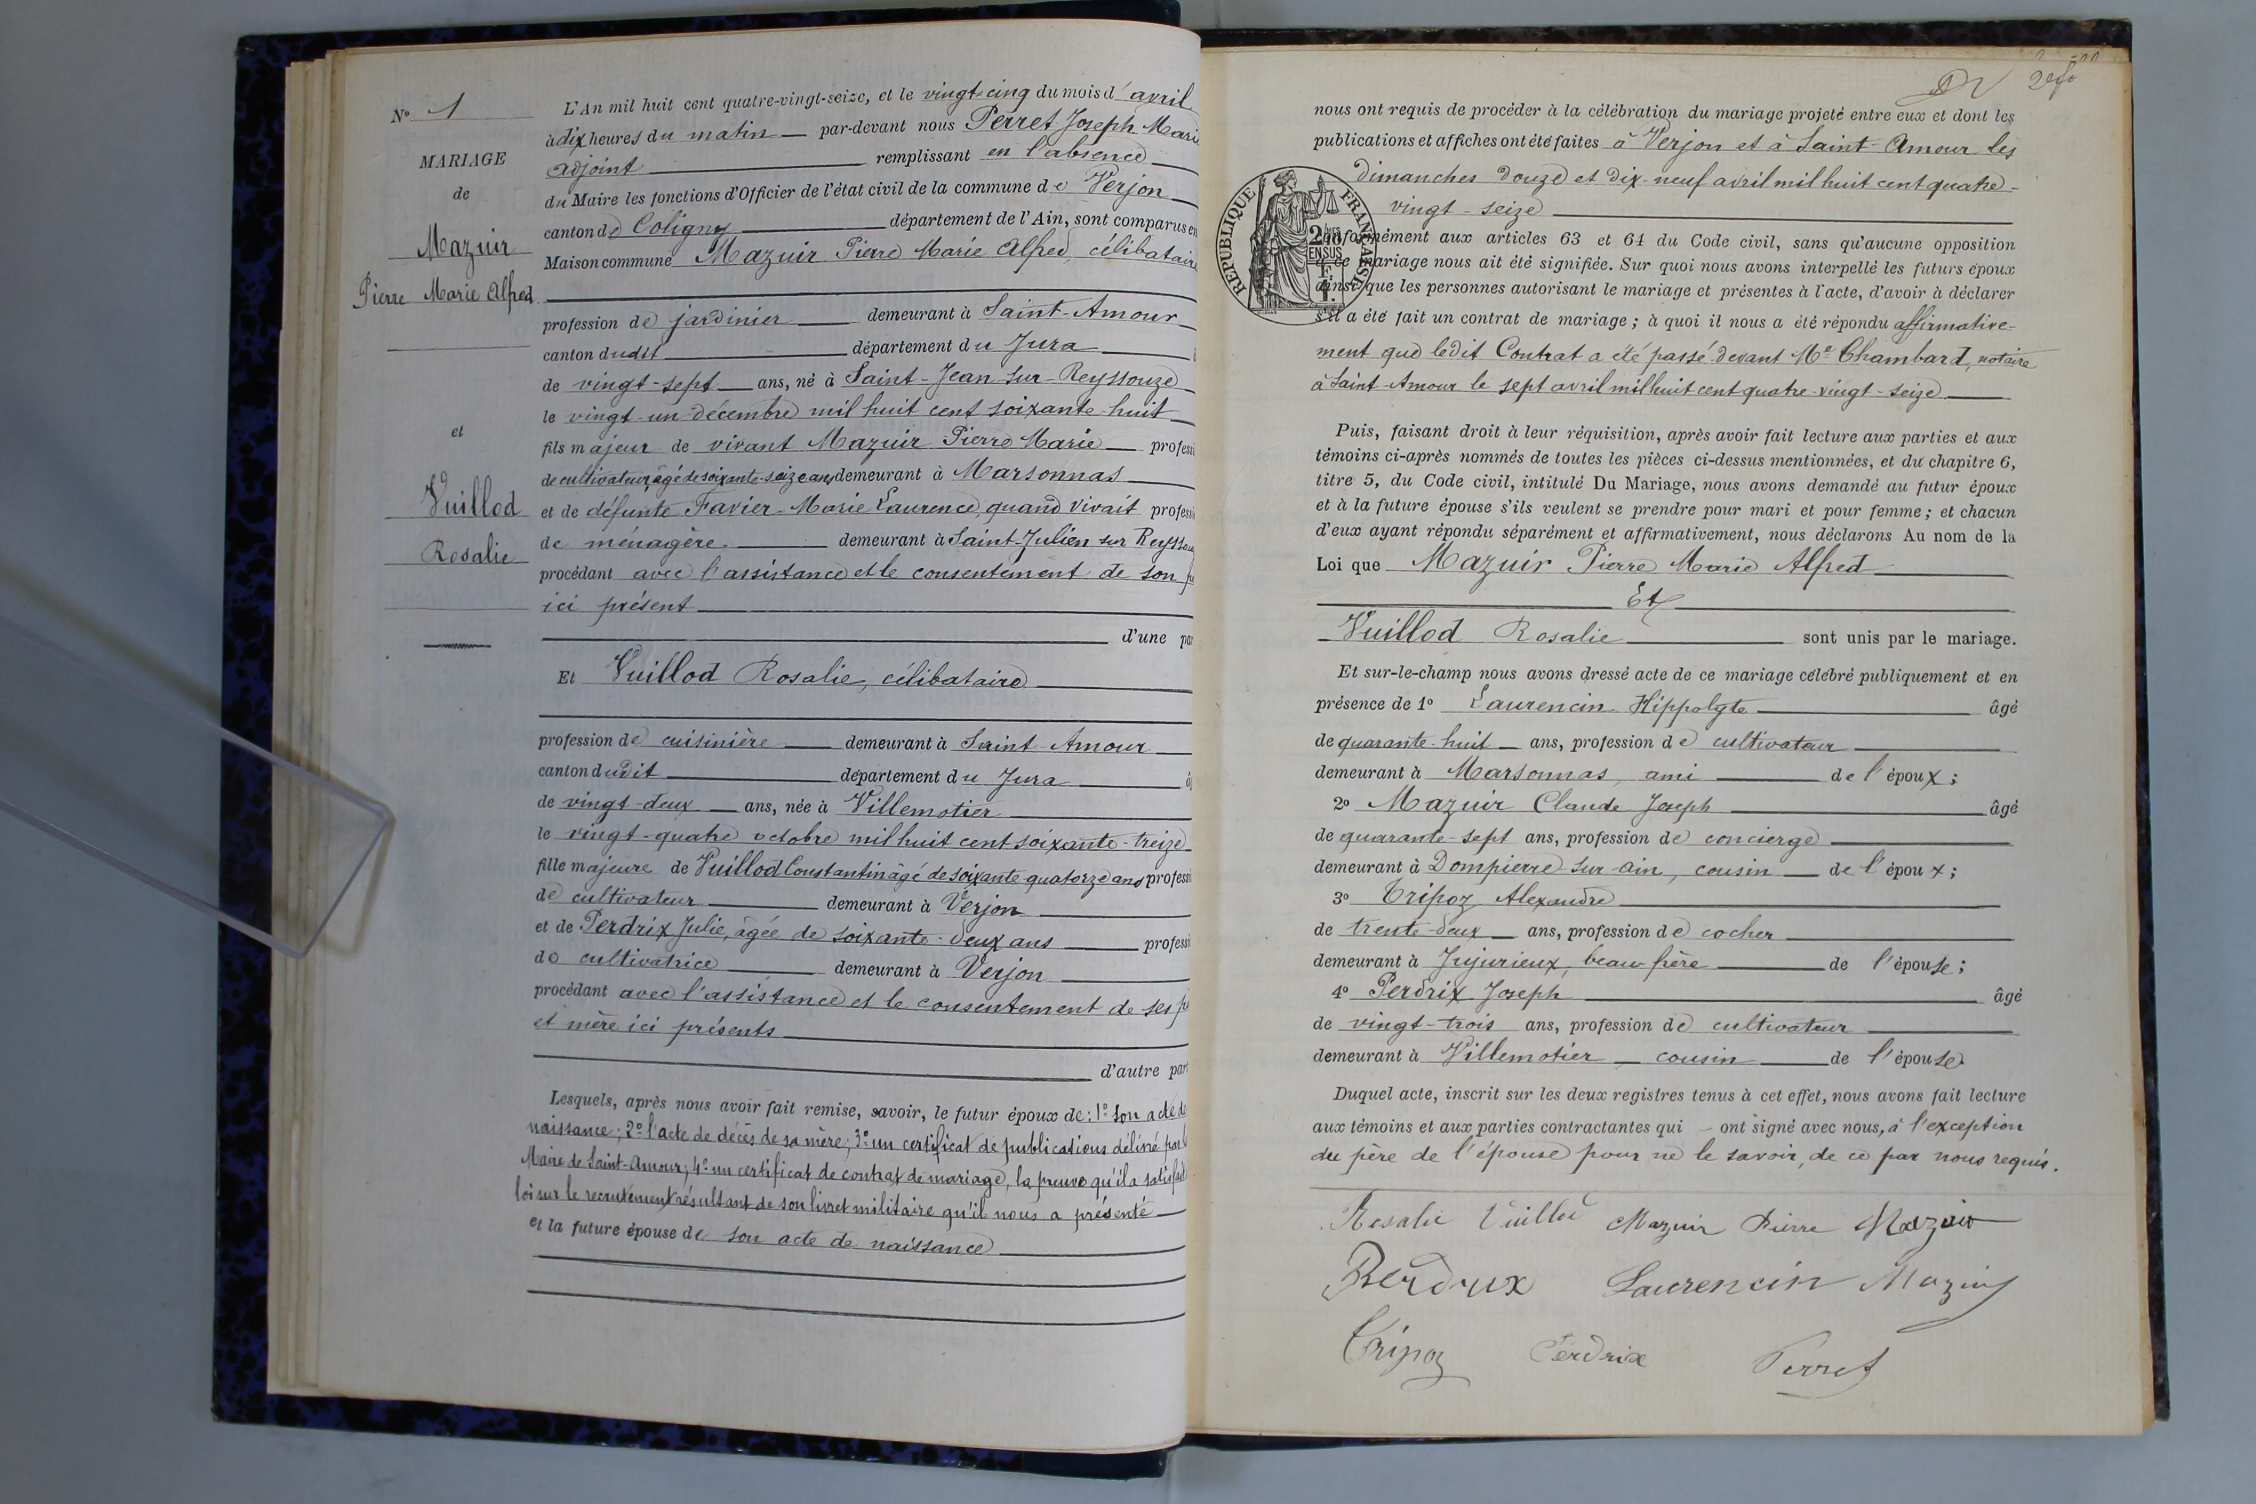 No 1
MARIAGE
de
Mazuir
Pierre Marie Alfred
et
Vuillod
Rosalie
L'An mil huit cent quatre-vingt-seize, et le vingt-cinq du mois d'avril
à dix heures du matin — par-devant nous Perret Joseph Marie
adjoint remplissant en l'absence
du Maire les fonctions d'Officier de l'état civil de la commune de Verjon
canton de Coligny département de l'Ain, sont comparus en
Maison commune Mazuir Pierre Marie Alfred, célibataire
profession de jardinier demeurant à Saint-Amour
canton dudit département du Jura
de vingt-sept ans, né à Saint-Jean-sur-Reyssouze
le vingt-un décembre mil huit cent soixante-huit
fils majeur de vivant Mazuir Pierre Marie — professi
de cultivateur, âgé de soixante-seize ans demeurant à Marsonnas
et de défunte Favier Marie Laurence, quand vivait professi
de ménagère demeurant à Saint-Julien sur Reyssou
procédant avec l'assistance et le consentement de son pè
ici présent
d'une par
Et Vuillod Rosalie, célibataire
profession de cuisinière demeurant à Saint-Amour
canton dudit département du Jura â
de vingt-deux ans, née à Villemotier
le vingt-quatre octobre mil huit cent soixante-treize
fille majeure de Vuillod Constantin âgé de soixante-quatorze ans professi
de cultivateur demeurant à Verjon
et de Perdrix Julie, âgée de soixante-deux ans professi
de cultivatrice demeurant à Verjon
procédant avec l'assistance et le consentement de ses pè
et mère ici présents
d'autre part
Lesquels, après nous avoir fait remise, savoir, le futur époux de : 1° son acte de
naissance ; 2° l'acte de décès de sa mère ; 3° un certificat de publications délivré par le
Maire de Saint-Amour ; 4° un certificat de contrat de mariage, la preuve qu'il a satisfait
loi sur le recrutement résultant de son livret militaire qu'il nous a présenté
et la future épouse de son acte de naissance
nous ont requis de procéder à la célébration du mariage projeté entre eux et dont les
publications et affiches ont été faites à Verjon et à Saint-Amour les
dimanches douze et dix-neuf avril mil huit cent quatre-
vingt-seize
REPUBLIQUE FRANÇAISE
Conformément aux articles 63 et 64 du Code civil, sans qu'aucune opposition
à ce mariage nous ait été signifiée. Sur quoi nous avons interpellé les futurs époux
ainsi que les personnes autorisant le mariage et présentes à l'acte, d'avoir à déclarer
s'il a été fait un contrat de mariage ; à quoi il nous a été répondu affirmative-
ment que ledit Contrat a été passé devant Me Chambard, notaire
à Saint-Amour le sept avril mil huit cent quatre-vingt-seize
Puis, faisant droit à leur réquisition, après avoir fait lecture aux parties et aux
témoins ci-après nommés de toutes les pièces ci-dessus mentionnées, et du chapitre 6,
titre 5, du Code civil, intitulé Du Mariage, nous avons demandé au futur époux
et à la future épouse s'ils veulent se prendre pour mari et pour femme ; et chacun
d'eux ayant répondu séparément et affirmativement, nous déclarons Au nom de la
Loi que Mazuir Pierre Marie Alfred
Et
Vuillod Rosalie sont unis par le mariage.
Et sur-le-champ nous avons dressé acte de ce mariage célébré publiquement et en
présence de 1° Laurencin Hippolyte âgé
de quarante-huit ans, profession de cultivateur
demeurant à Marsonnas, ami de l'époux ;
2° Mazuir Claude Joseph âgé
de quarante-sept ans, profession de concierge
demeurant à Dompierre sur-ain, cousin de l'époux ;
3° Tripoz Alexandre
de trente-deux ans, profession de cocher
demeurant à Jujurieux, beau-frère de l'épouse ;
4° Perdrix Joseph âgé
de vingt-trois ans, profession de cultivateur
demeurant à Villemotier cousin de l'épouse
Duquel acte, inscrit sur les deux registres tenus à cet effet, nous avons fait lecture
aux témoins et aux parties contractantes qui — ont signé avec nous, à l'exception
du père de l'épouse pour ne le savoir, de ce par nous requis.
Rosalie Vuillod Mazuir Pierre Mazuir
Perdrix Laurencin Mazuir
Tripoz Perdrix Perret